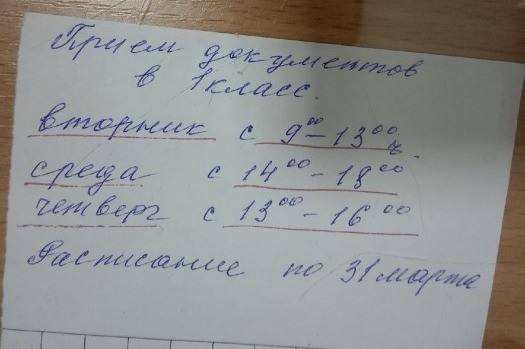 Прием документов
в 1 класс.
вторник с 9⁰⁰ – 13⁰⁰ ч.
среда с 14⁰⁰ – 18⁰⁰
четверг с 13⁰⁰ – 16⁰⁰
Расписание по 31 марта